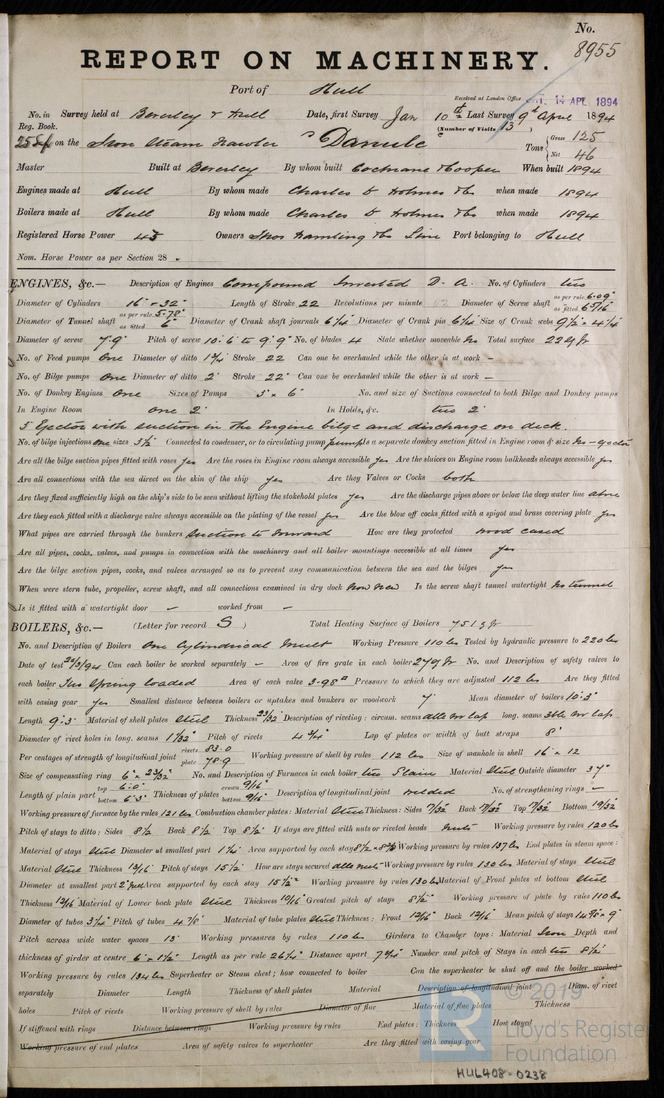 No.
8955
REPORT ON MACHINERY.
Port of Hull
Received at London Office 14 APL 1894
No. in Survey held at Beverley & Hull Date, first Survey Jan 10th Last Survey 9th April 1894
Reg. Book. (Number of Visits 13)
on the Iron Steam Trawler "Danube" Tons { Gross 125 Net 46
Master Built at Beverley By whom built Cochrane & Cooper When built 1894
Engines made at Hull By whom made Charles D Holmes & Co when made 1894
Boilers made at Hull By whom made Charles D Holmes & Co when made 1894
Registered Horse Power 45 Owners Port belonging to Hull
Nom. Horse Power as per Section 28
ENGINES, &c.— Description of Engines Compound Inverted D. A. No. of Cylinders two
Diameter of Cylinders 16" - 32" Length of Stroke 22 Revolutions per minute Diameter of Screw shaft as per rule 6.09" as fitted 6 5/16"
Diameter of Tunnel shaft as per rule 5.78" as fitted 6" Diameter of Crank shaft journals 6 1/4" Diameter of Crank pin 6 1/4" Size of Crank webs
Diameter of screw 7'.9" Pitch of screw 10'.6" to 9'.9" No. of blades 4 State whether moveable No Total surface 22 sq ft
No. of Feed pumps One Diameter of ditto Stroke 22 Can one be overhauled while the other is at work -
No. of Bilge pumps One Diameter of ditto 2" Stroke 22" Can one be overhauled while the other is at work -
No. of Donkey Engines One Sizes of Pumps 3" x 6" No. and size of Suctions connected to both Bilge and Donkey pumps
In Engine Room One 2" In Holds, &c. two 2"
3" Ejector with suction in the Engine bilge and discharge on deck.
No. of bilge injections one sizes 3 1/2 Connected to condenser, or to circulating pump pump Is a separate donkey suction fitted in Engine room & size No - ejector
Are all the bilge suction pipes fitted with roses yes Are the roses in Engine room always accessible yes Are the sluices on Engine room bulkheads always accessible yes
Are all connections with the sea direct on the skin of the ship yes Are they Valves or Cocks both
Are they fixed sufficiently high on the ship's side to be seen without lifting the stokehold plates yes Are the discharge pipes above or below the deep water line above
Are they each fitted with a discharge valve always accessible on the plating of the vessel yes Are the blow off cocks fitted with a spigot and brass covering plate yes
What pipes are carried through the bunkers Suction to forward How are they protected wood cased
Are all pipes, cocks, valves, and pumps in connection with the machinery and all boiler mountings accessible at all times yes
Are the bilge suction pipes, cocks, and valves arranged so as to prevent any communication between the sea and the bilges yes
When were stern tube, propeller, screw shaft, and all connections examined in dry dock Now new Is the screw shaft tunnel watertight No tunnel
Is it fitted with a watertight door - worked from -
BOILERS, &c.— (Letter for record S) Total Heating Surface of Boilers 751 sq ft
No. and Description of Boilers One Cylindrical Mult Working Pressure 110 lbs Tested by hydraulic pressure to 220 lbs
Date of test Can each boiler be worked separately - Area of fire grate in each boiler 27 sq ft No. and Description of safety valves to
each boiler Two Spring loaded Area of each valve 3.98" Pressure to which they are adjusted 112 lbs Are they fitted
with casing gear yes Smallest distance between boilers or uptakes and bunkers or woodwork 7" Mean diameter of boilers 10'.3"
Length 9'.3" Material of shell plates Steel Thickness 23/32 Description of riveting: circum. seams dble riv lap long. seams
Diameter of rivet holes in long. seams 1 1/32" Pitch of rivets 4 3/4" Lap of plates or width of butt straps 8"
Per centages of strength of longitudinal joint rivets 83.0 plate 78.9 Working pressure of shell by rules 112 lbs Size of manhole in shell 16" x 12
Size of compensating ring 6" x 23/32" No. and Description of Furnaces in each boiler two Plain Material Steel Outside diameter 37"
Length of plain part top 6'.0" bottom 6'.3" Thickness of plates crown 9/16" bottom 9/16" Description of longitudinal joint welded No. of strengthening rings -
Working pressure of furnace by the rules 121 lbs Combustion chamber plates: Material Steel Thickness: Sides Back Top Bottom 19/32
Pitch of stays to ditto: Sides 8 1/2 Back 8 1/2" Top 8 1/2" If stays are fitted with nuts or riveted heads nuts Working pressure by rules 120 lbs
Material of stays Steel Diameter at smallest part Area supported by each stay Working pressure by rules 137 lbs End plates in steam space:
Material Steel Thickness 13/16 Pitch of stays 15 1/2" How are stays secured dble nuts Working pressure by rules 130 lbs Material of stays Steel
Diameter at smallest part Area supported by each stay 15 1/2" Working pressure by rules 130 lbs Material of Front plates at bottom Steel
Thickness 12/16 Material of Lower back plate Steel Thickness 10/16 Greatest pitch of stays 8 1/2" Working pressure of plate by rules 110 lbs
Diameter of tubes 3 1/4" Pitch of tubes 4 7/8" Material of tube plates Steel Thickness: Front 12/16" Back 12/16" Mean pitch of stays
Pitch across wide water spaces 13" Working pressures by rules 110 lbs Girders to Chamber tops: Material Iron Depth and
thickness of girder at centre 6" x 1 1/2" Length as per rule 26 1/2" Distance apart 7 3/4" Number and pitch of Stays in each two 8 1/2"
Working pressure by rules 134 lbs Superheater or Steam chest; how connected to boiler Can the superheater be shut off and the boiler worked
separately Diameter Length Thickness of shell plates Material Description of longitudinal joint Diam. of rivet
holes Pitch of rivets Working pressure of shell by rules Diameter of flue Material of flue plates Thickness
If stiffened with rings Distance between rings Working pressure by rules End plates: Thickness How stayed
Working pressure of end plates Area of safety valves to superheater Are they fitted with easing gear
© 2019
Lloyd's Register
Foundation
HUL408-0238